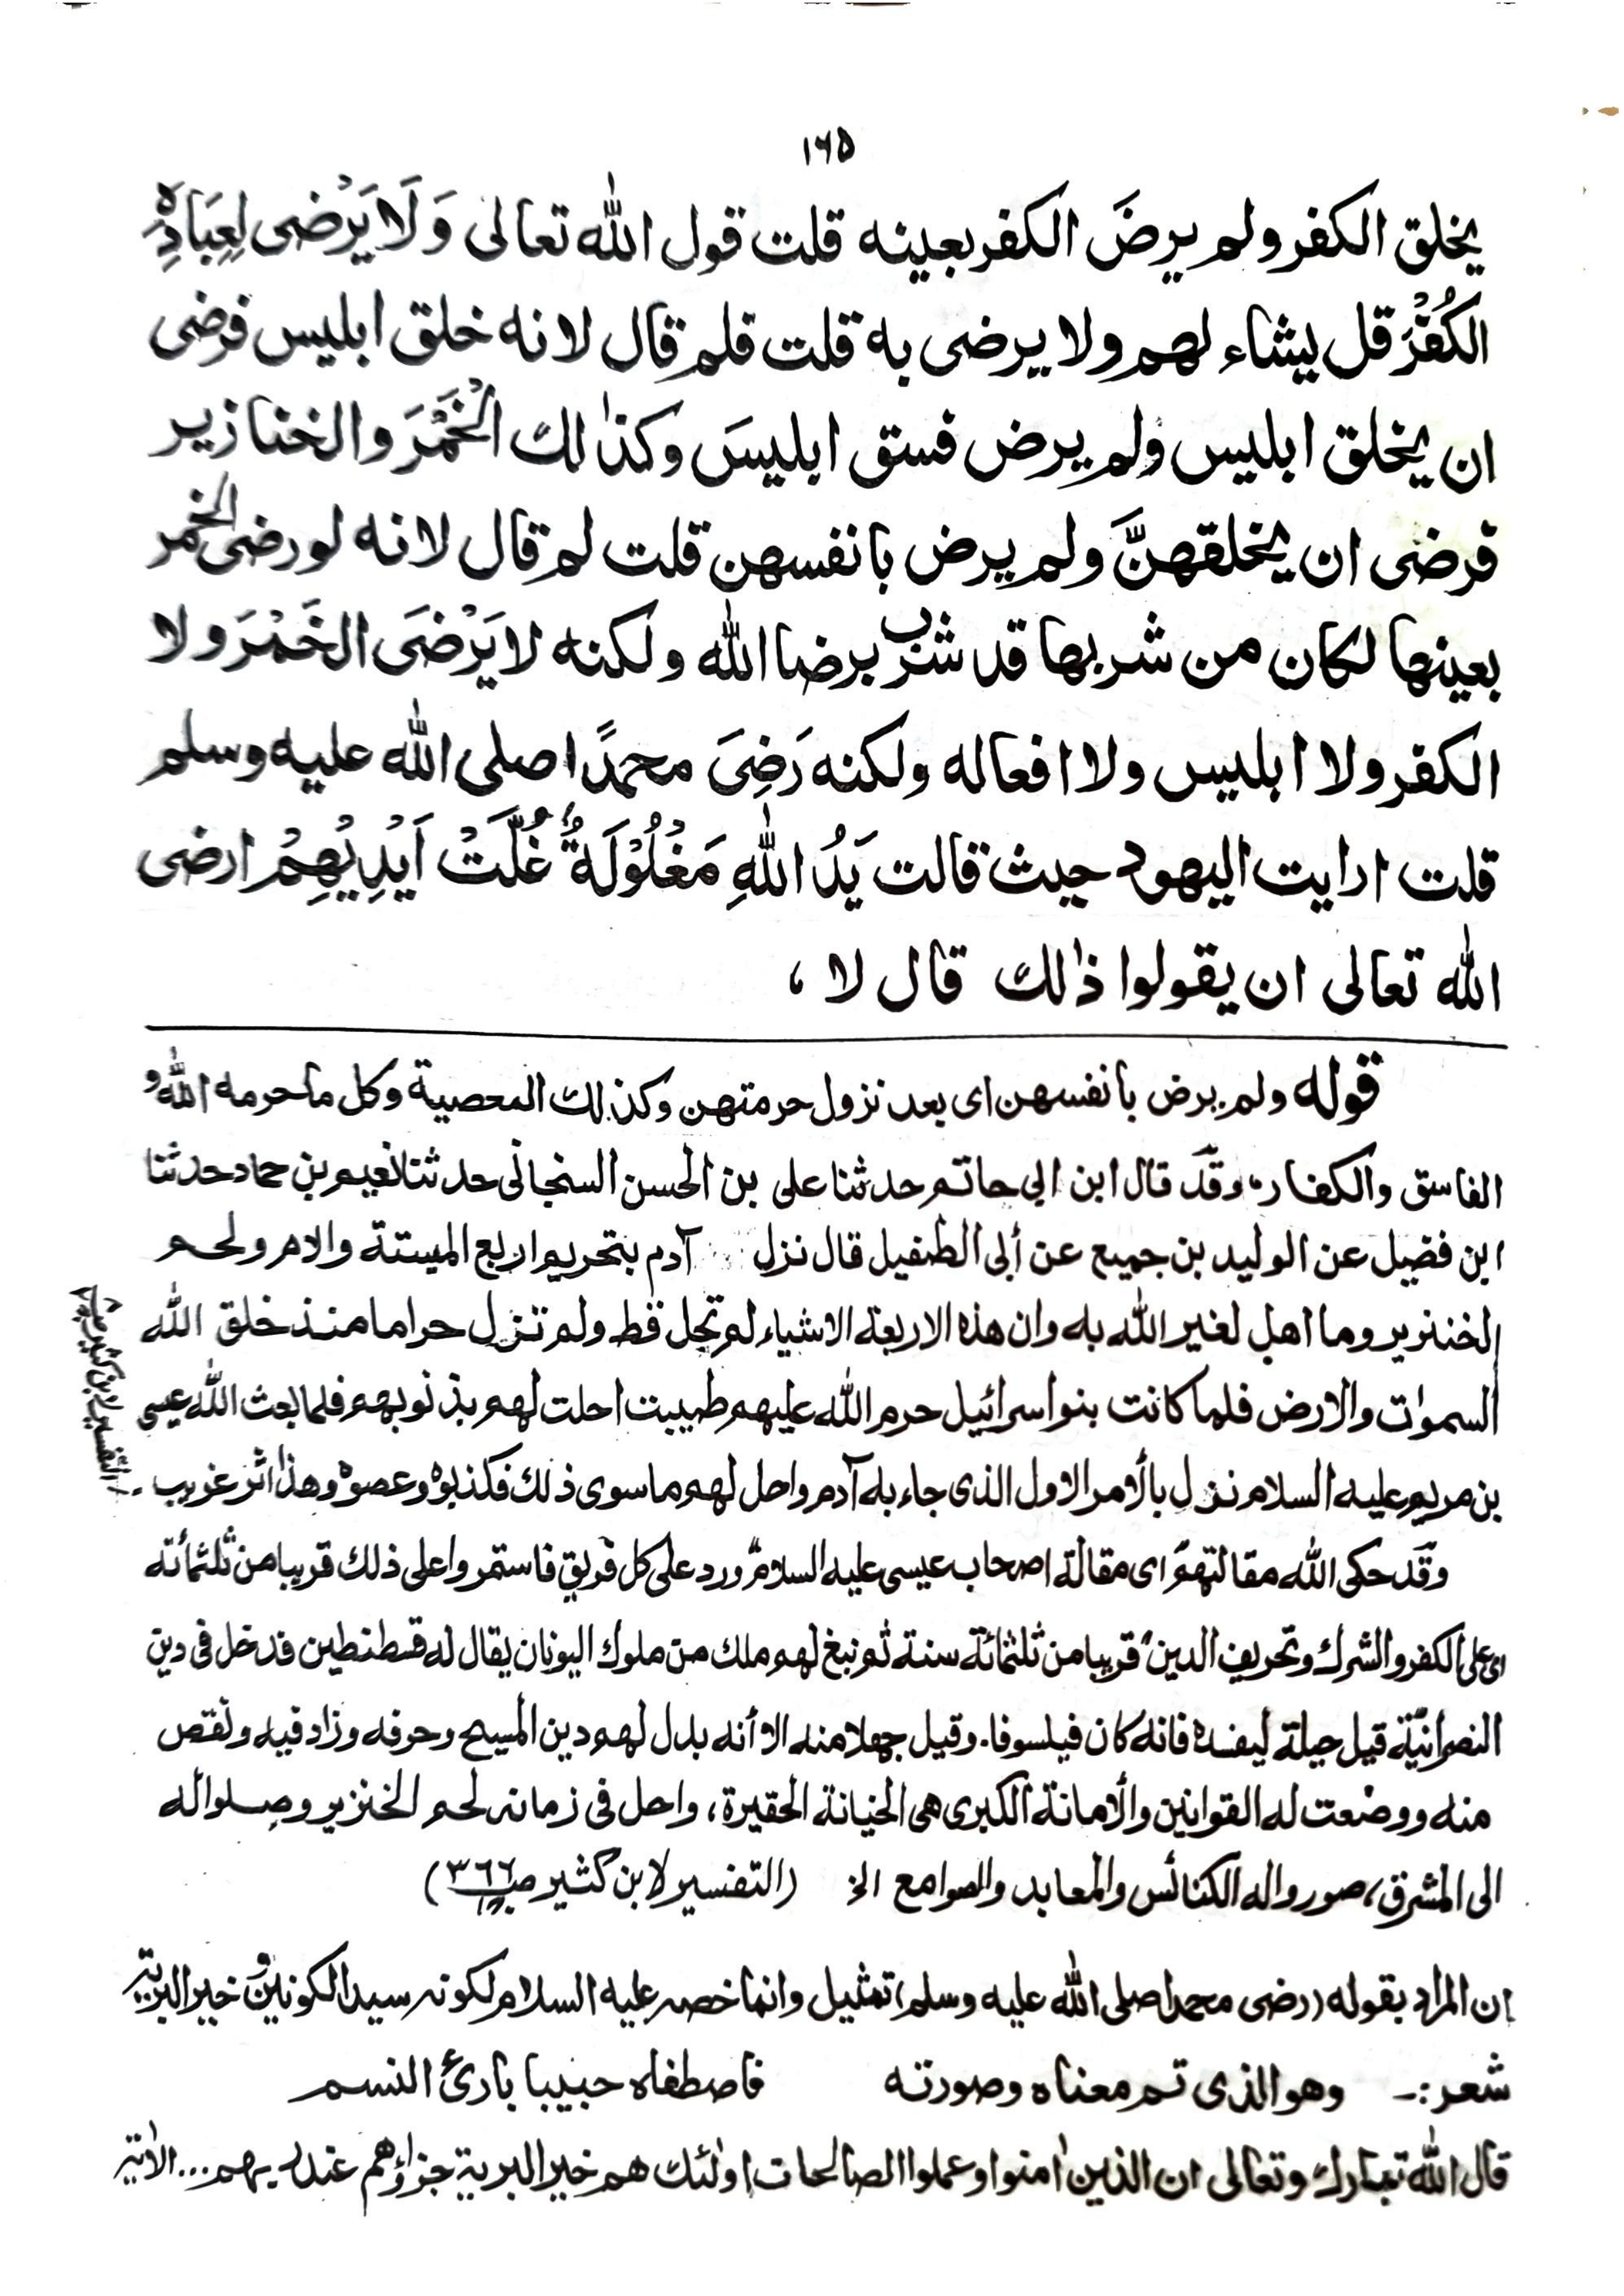 ۱۶۵
يخلق الكفر ولم يرضَ الكفر بعينه قلت قول الله تعالى وَلَا يَرْضٰى لِعِبَادِهِ
الكُفْرَ قل يشاء لهم ولا يرضى به قلت فلم قال لانه خلق ابليس فرضى
ان يخلق ابليس ولم يرض فسق ابليسَ وكذٰلك الْخَمْرَ والخنازير
فرضى ان يخلقهنَّ ولم يرض بانفسهن قلت لم قال لانه لو رضى الخمر
بعينها لكان من شربها قد شرب برضا الله ولكنه لا يَرْضَى الخَمْرَ ولا
الكفر ولا ابليس ولا افعاله ولكنه رَضِىَ محمدًا صلى الله عليه وسلم
قلت ارايت اليهود حيث قالت يَدُ اللهِ مَغْلُوْلَةٌ غُلَّتْ اَيْدِيْهِمْ ارضى
الله تعالى ان يقولوا ذٰلك قال لا ،
قوله ولم يرض بانفسهن اى بعد نزول حرمتهن وكذلك المعصية وكل ما حرمه الله و
الفاسق والكفار، وقد قال ابن ابي حاتم حدثنا على بن الحسن السنجانى حدثنا نعيم بن حماد حدثنا
ابن فضيل عن الوليد بن جميع عن أبى الطفيل قال نزل آدم بتحريم اربع الميستة والامر ولحم
الخنزير وما اهل لغير الله به وان هذه الاربعة الاشياء لم تحل قط ولم تزل حراما منذ خلق الله
السموات والارض فلما كانت بنو اسرائيل حرم الله عليهم طيبت احلت لهم بذنوبهم فلما بعث الله عيسى
بن مريم عليه السلام نزل بالأمر الاول الذى جاء به آدم واحل لهم ما سوى ذلك فكذبوه وعصوه وهذا اثر غريب
التفسير لابن كثير
وقد حكى الله مقالتهم اى مقالة اصحاب عيسى عليه السلام ورد على كل فريق فاستمروا على ذلك قريبا من ثلثمأته
اى على الكفر والشرك وتحريف الدين قريبا من ثلثمائة سنة ثم نبغ لهم ملك من ملوك اليونان يقال له قسطنطين فدخل فى دين
النصرانيّة قيل حيلة ليفسده فانه كان فيلسوفا. وقيل جهلا منه الا أنه بدل لهم دين المسيح وحرفه وزاد فيه ونقص
منه ووضعت له القوانين والامانة الكبرى هى الخيانة الحقيرة، واحل فى زمانه لحم الخنزير وصلوا له
الى المشرق، صوروا له الكنائس والمعابد والصوامع الخ (التفسير لابن كثير ص ۳۶۶)
ان المراد بقوله (رضى محمدا صلى الله عليه وسلم) تمثيل وانما خصه عليه السلام لكونه سيد الكونين و خير البرية
شعر :- وهو الذى تم معناه وصورته فاصطفاه حبيبا بارئ النسم
قال الله تبارك وتعالى ان الذين اٰمنوا وعملوا الصالحات اولئك هم خير البرية جزاؤهم عند ربهم ... الاٰية